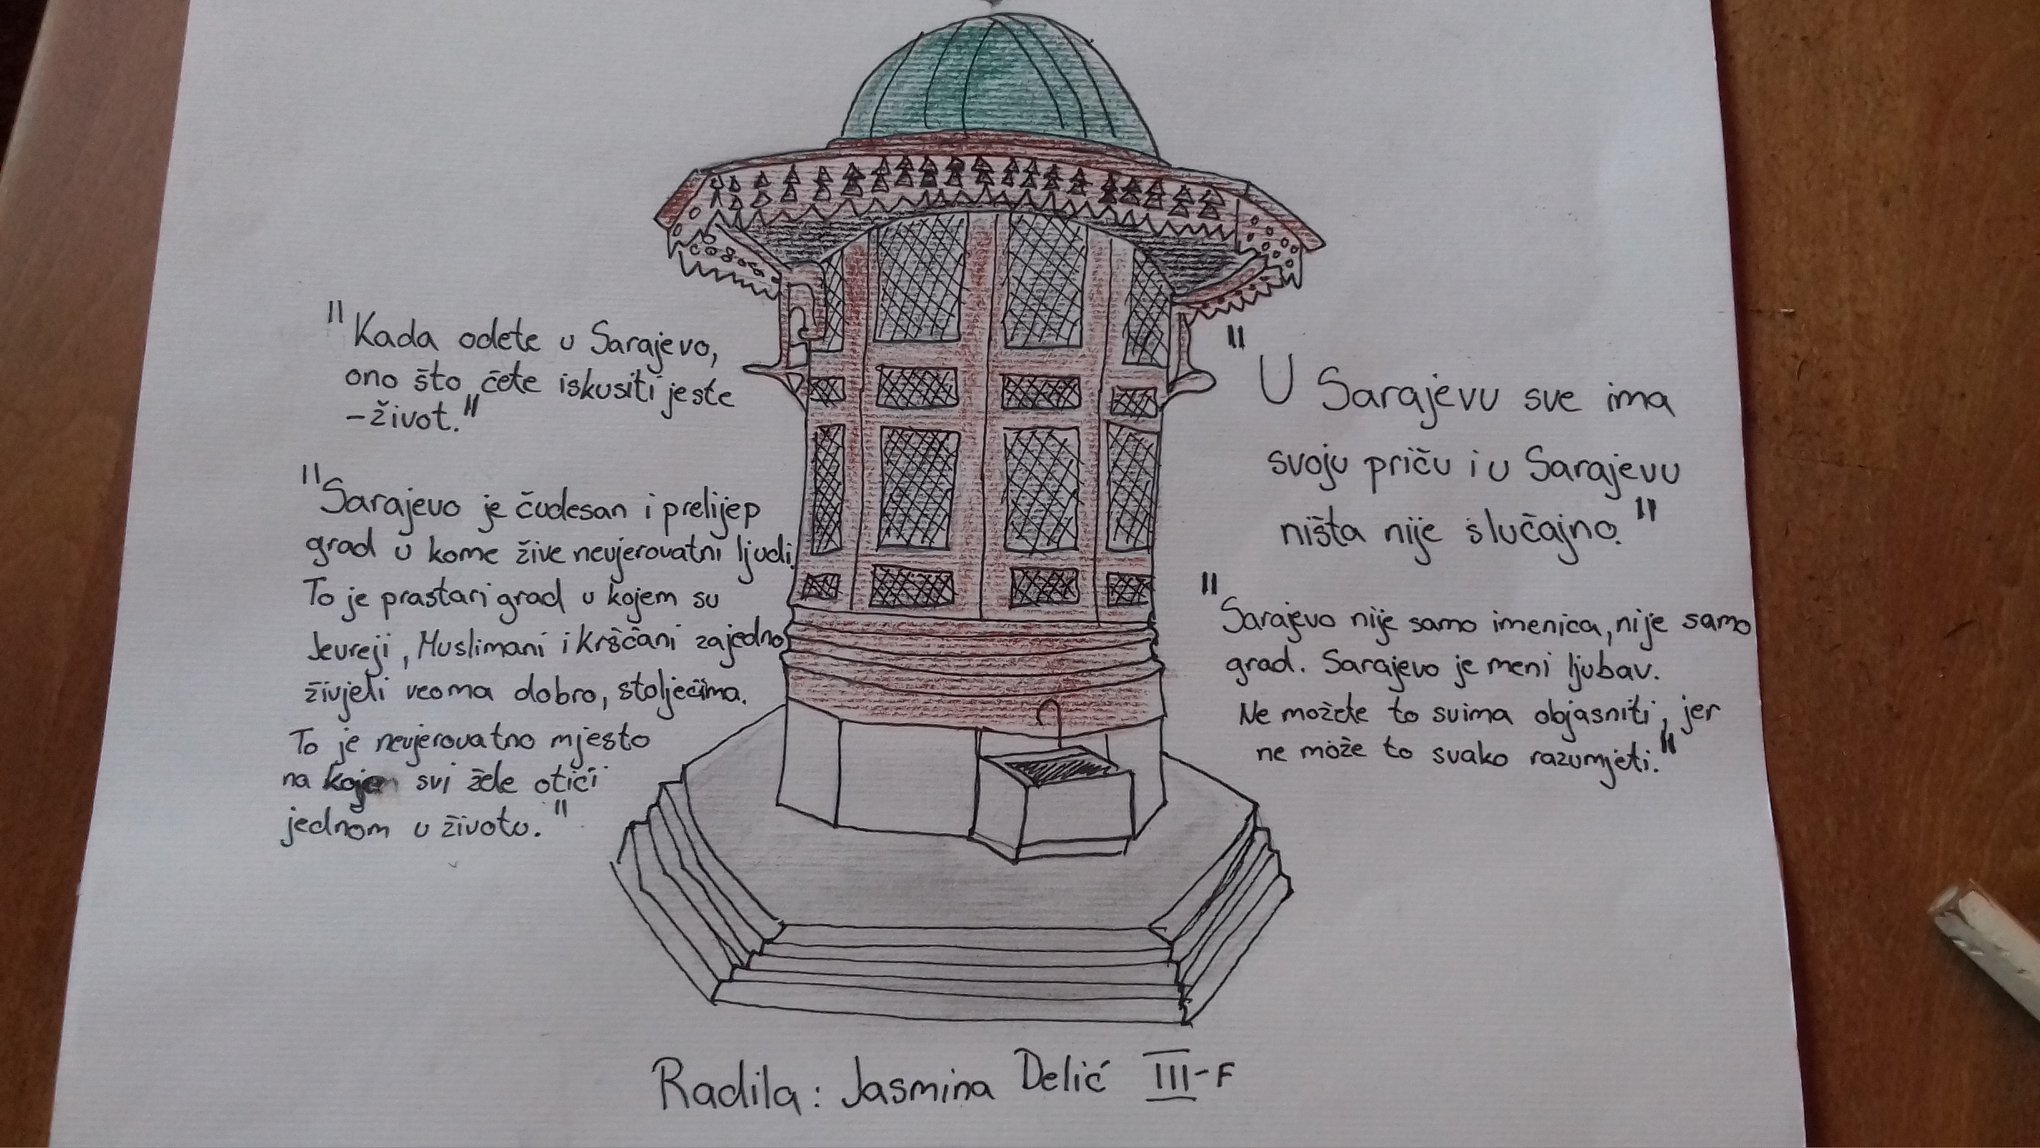 "Kada odete u Sarajevo,
ono što ćete iskusiti jeste
-život."
"Sarajevo je čudesan i prelijep
grad u kome žive nevjerovatni ljudi.
To je prastari grad u kojem su
Jevreji, Muslimani i kršćani zajedno
živjeli veoma dobro, stoljećima.
To je nevjerovatno mjesto
na kojem svi žele otići
jednom u životu."
"U Sarajevu sve ima
svoju priču i u Sarajevu
ništa nije slučajno."
"Sarajevo nije samo imenica, nije samo
grad. Sarajevo je meni ljubav.
Ne možete to svima objasniti, jer
ne može to svako razumjeti."
Radila: Jasmina Delić III-F